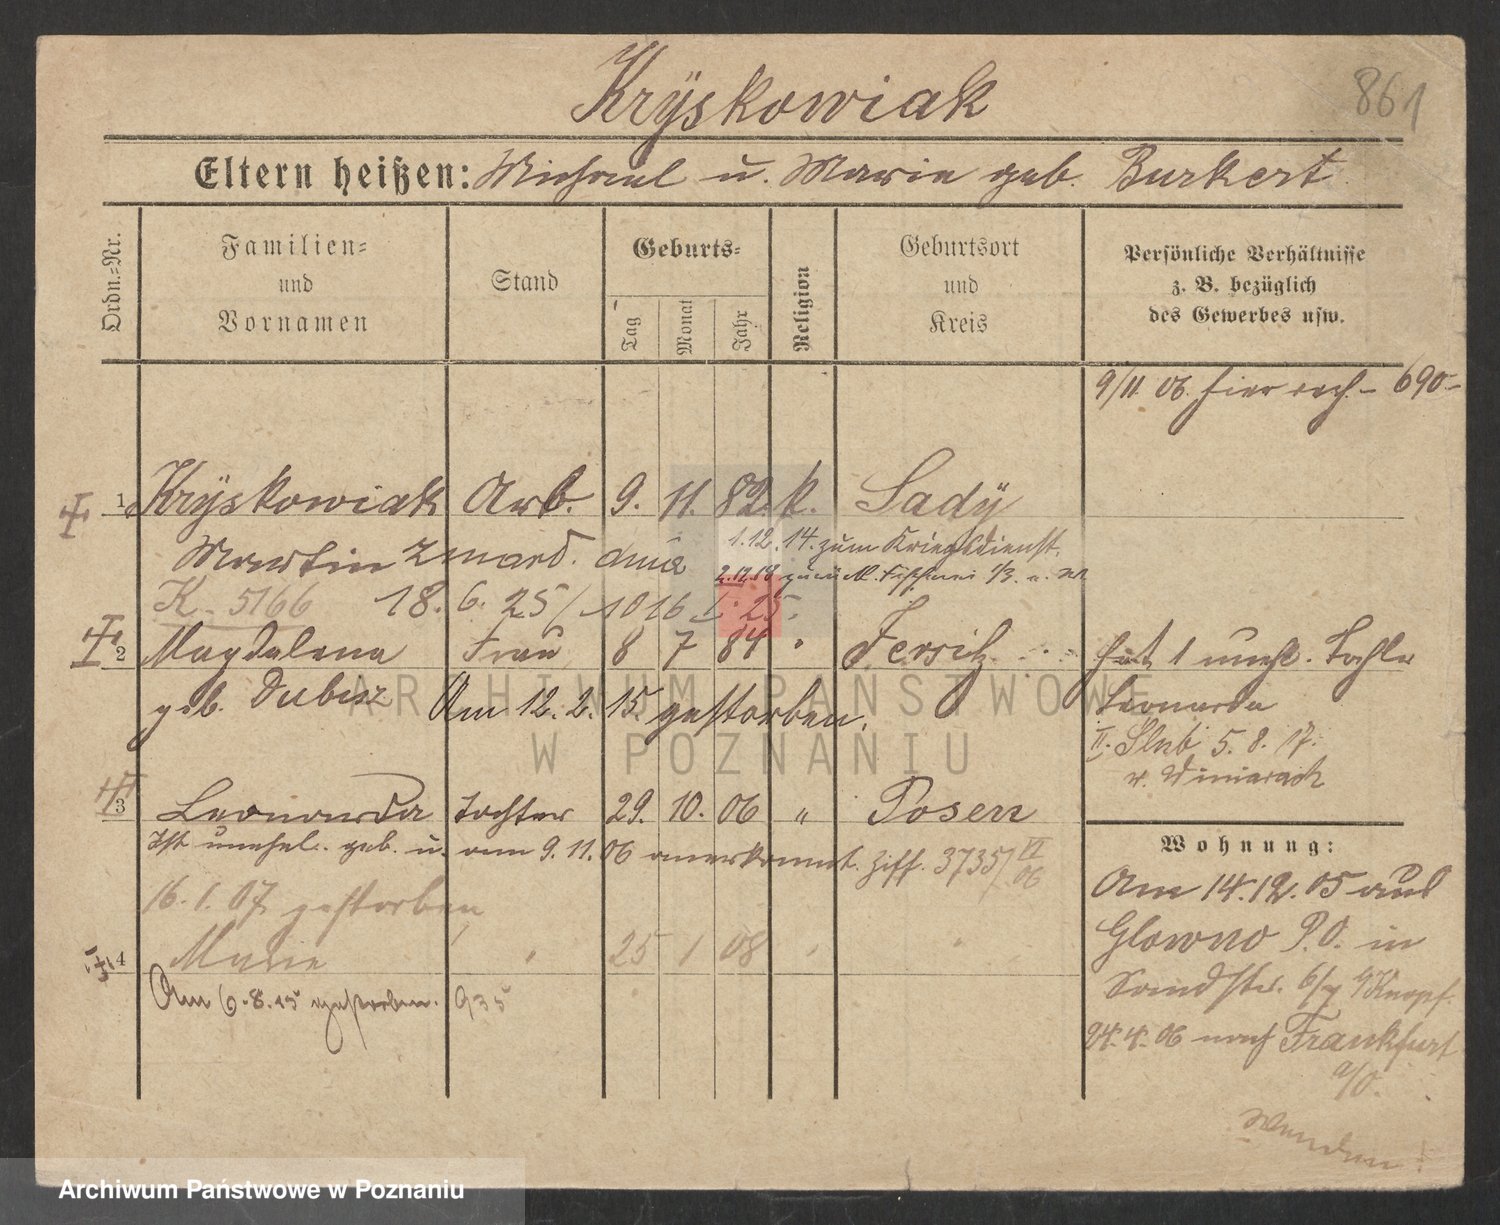 Kryskowiak
861
Eltern heißen: Michael u. Marie geb. Burkert
Ordn.=Nr.
Familien= und Vornamen
Stand
Geburts=
Tag
Monat
Jahr
Religion
Geburtsort und Kreis
Persönliche Verhältnisse
z. B. bezüglich
des Gewerbes usw.
9/11. 06. hier - 690-
1 Kryskowiak Arb. 9. 11. 82. k. Sady
Martin
1.12.14. zum Kriegsdienst.
2.12.18 zurück.
K. 5166 18. 6. 25/1016 I. 25.
2 Magdalena Frau 8 7 84 " Fersitz
geb. Dubisz Am 12. 2. 15. gestorben.
hat 1 unehl. Tochter
Leonarda
II. Slub 5. 8. 17.
w. Winiarach
3 Leonarda Tochter 29. 10. 06 " Posen
Ist unehel. geb. u. am 9. 11. 06 anerkannt. Ziff. 3735/VI 06
16. 1. 07 gestorben
4 Marie " 25 1 08 " "
Am 6.8.15 gestorben. 935
Wohnung:
Am 14.12.05 aus
Glowno P.O. in
Sandstr. 6/7 b/Knopf.
24. 4. 06 nach Frankfurt
a/O.
Wenden!
ARCHIWUM PAŃSTWOWE
W POZNANIU
Archiwum Państwowe w Poznaniu